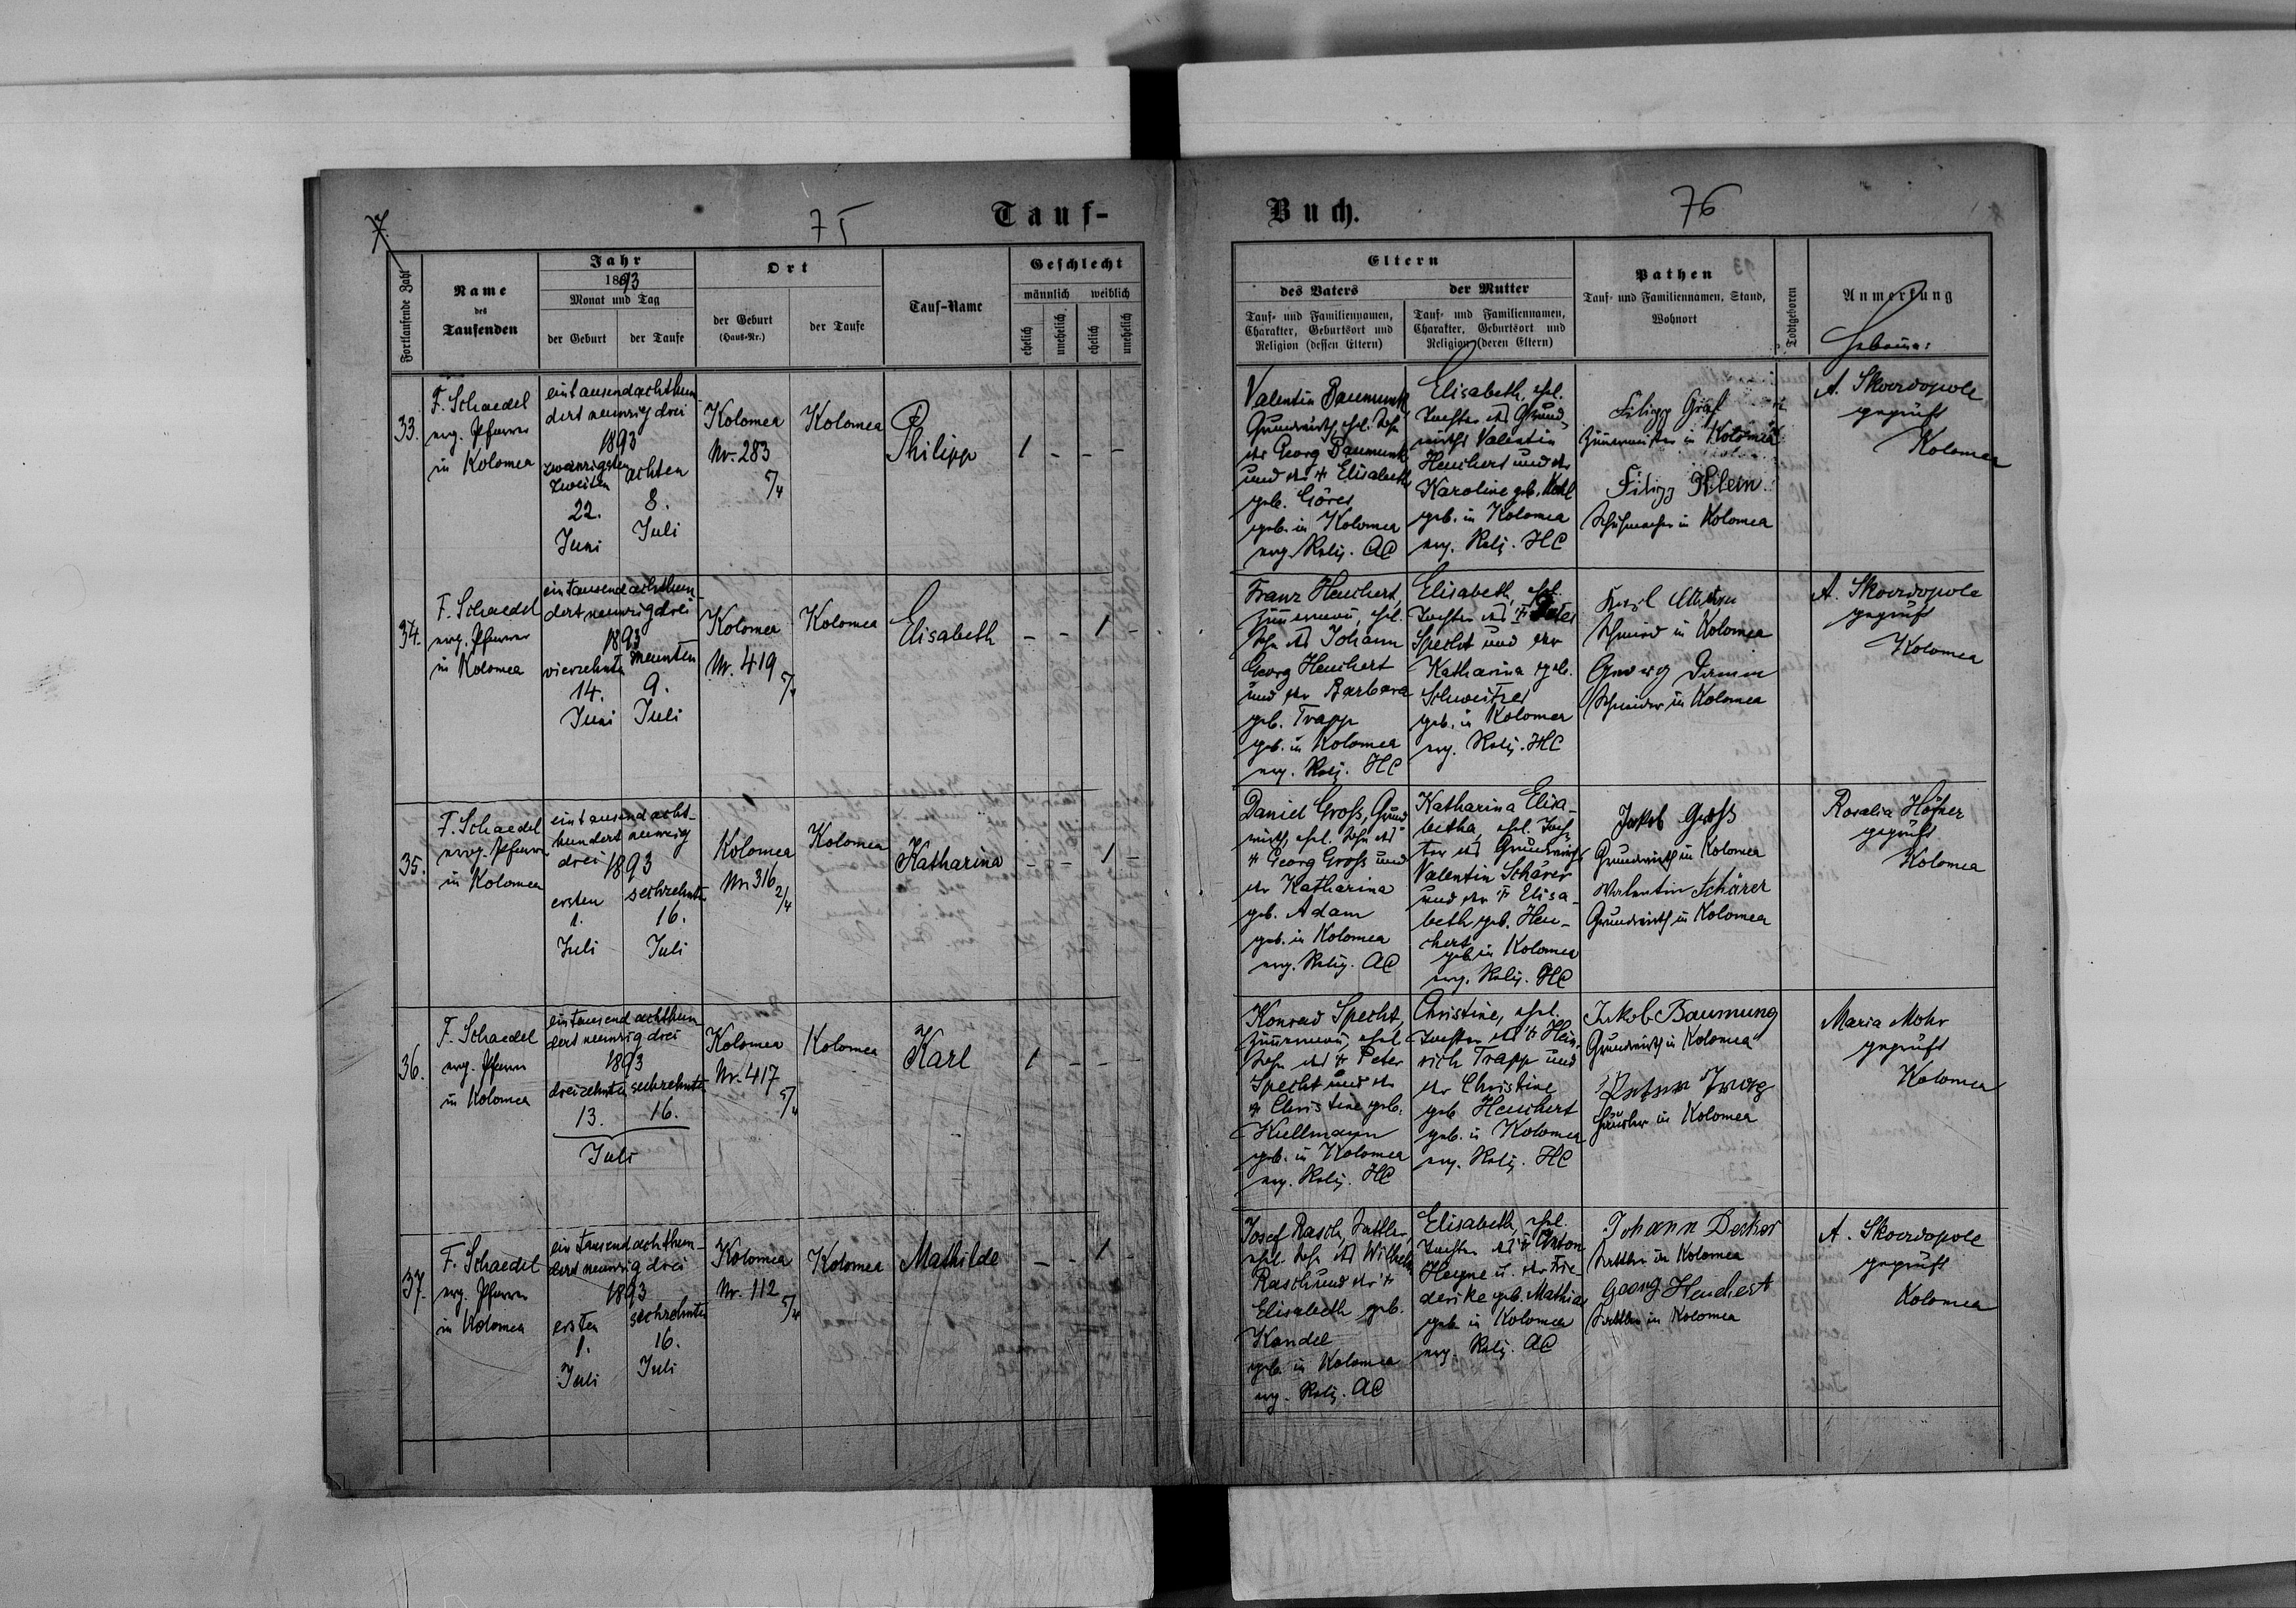 7.
75
Tauf-
Fortlaufende Zahl
Name
des
Taufenden
Jahr
1893
Monat und Tag
der Geburt
der Taufe
Ort
der Geburt
(Haus-Nr.)
der Taufe
Tauf-Name
Geschlecht
männlich
weiblich
ehelich
unehelich
ehelich
unehelich
33.
F. Schaedel
evg. Pfarrer
in Kolomea
eintausendachthun-
dert neunzig drei
1893
zwanzigsten
zweiten
22.
Juni
achten
8.
Juli
Kolomea
Nr. 283
5/4
Kolomea
Philipp
1 - - -
34.
F. Schaedel
evg. Pfarrer
in Kolomea
eintausendachthun-
dert neunzig drei
1893
vierzehnten
14.
Juni
neunten
9.
Juli
Kolomea
Nr. 419
5/4
Kolomea
Elisabeth
- - 1 -
35.
F. Schaedel
evg. Pfarrer
in Kolomea
eintausend acht-
hundert neunzig
drei 1893
ersten
1.
Juli
sechzehnten
16.
Juli
Kolomea
Nr. 316
2/4
Kolomea
Katharina
- - 1 -
36.
F. Schaedel
evg. Pfarrer
in Kolomea
eintausend achthun-
dert neunzig drei
1893
dreizehnten sechzehnten
13. 16.
Juli
Kolomea
Nr. 417
5/4
Kolomea
Karl
1 - - -
37.
F. Schaedel
evg. Pfarrer
in Kolomea
ein tausend achthun-
dert neunzig drei
1893
ersten
1.
Juli
sechzehnten
16.
Juli
Kolomea
Nr. 112
5/4
Kolomea
Mathilde
- - 1 -
Buch.
76
Eltern
des Vaters
Tauf- und Familiennamen,
Charakter, Geburtsort und
Religion (dessen Eltern)
der Mutter
Tauf- und Familiennamen,
Charakter, Geburtsort und
Religion (deren Eltern)
Pathen
Tauf- und Familiennamen, Stand,
Wohnort
Todtgeboren
Anmerkung
Hebame:
Valentin Baumunk
Grundwirth, ehl. Sohn
des Georg Baumunk
und der † Elisabeth
geb. Göres
geb. in Kolomea
evg. Relig. AC
Elisabeth, ehl.
Tochter des Grund-
wirths Valentin
Heuchert und der
Karoline geb. Kohl
geb. in Kolomea
evg. Relig. HC
Filipp Graf
Zimmermeister in Kolomea
Filipp Klein
Schuhmacher in Kolomea
A. Skowdopole
geprüft
Kolomea
Franz Heuchert,
Zimmermann, ehl.
Sohn des Johann
Georg Heuchert
und der Barbara
geb. Trapp
geb. in Kolomea
evg. Relig. HC
Elisabeth, ehl.
Tochter des † Peter
Specht und der
Katharina geb.
Schweitzer
geb. in Kolomea
evg. Relig. HC
Karl
Schmied in Kolomea
Georg Damm
Schneider in Kolomea
A. Skowdopole
geprüft
Kolomea
Daniel Gross, Grund-
wirth, ehl. Sohn des
† Georg Gross und
der Katharina
geb. Adam
geb. in Kolomea
evg. Relig. AC
Katharina Elisa-
betha, ehl. Toch-
ter des Grundwirths
Valentin Schärer
und der † Elisa-
beth geb. Heu-
chert
geb. in Kolomea
evg. Relig. HC
Jakob Gross
Grundwirth in Kolomea
Walentin Schärer
Grundwirth in Kolomea
Rosalia Höfner
geprüft
Kolomea
Konrad Specht,
Zimmermann, ehel.
Sohn des † Peter
Specht und der
† Christine geb.
Kullmann
geb. in Kolomea
evg. Relig. HC
Christine, ehl.
Tochter des † Hein-
rich Trapp und
der Christine
geb. Heuchert
geb. in Kolomea
evg. Relig. HC
Jakob Baumung
Grundwirth in Kolomea
Häusler in Kolomea
Maria Mohr
geprüft
Kolomea
Josef Rasch, Sattler,
ehl. Sohn des Wilhelm
Rasch und der †
Elisabeth geb.
Kandel
geb. in Kolomea
evg. Relig. AC
Elisabeth, ehl.
Tochter des † Anton
Heyne u. der Frie-
derike geb. Mathias
geb. in Kolomea
evg. Relig. AC
Johann Decker
Sattler in Kolomea
Georg Heuchert
Sattler in Kolomea
A. Skowdopole
geprüft
Kolomea